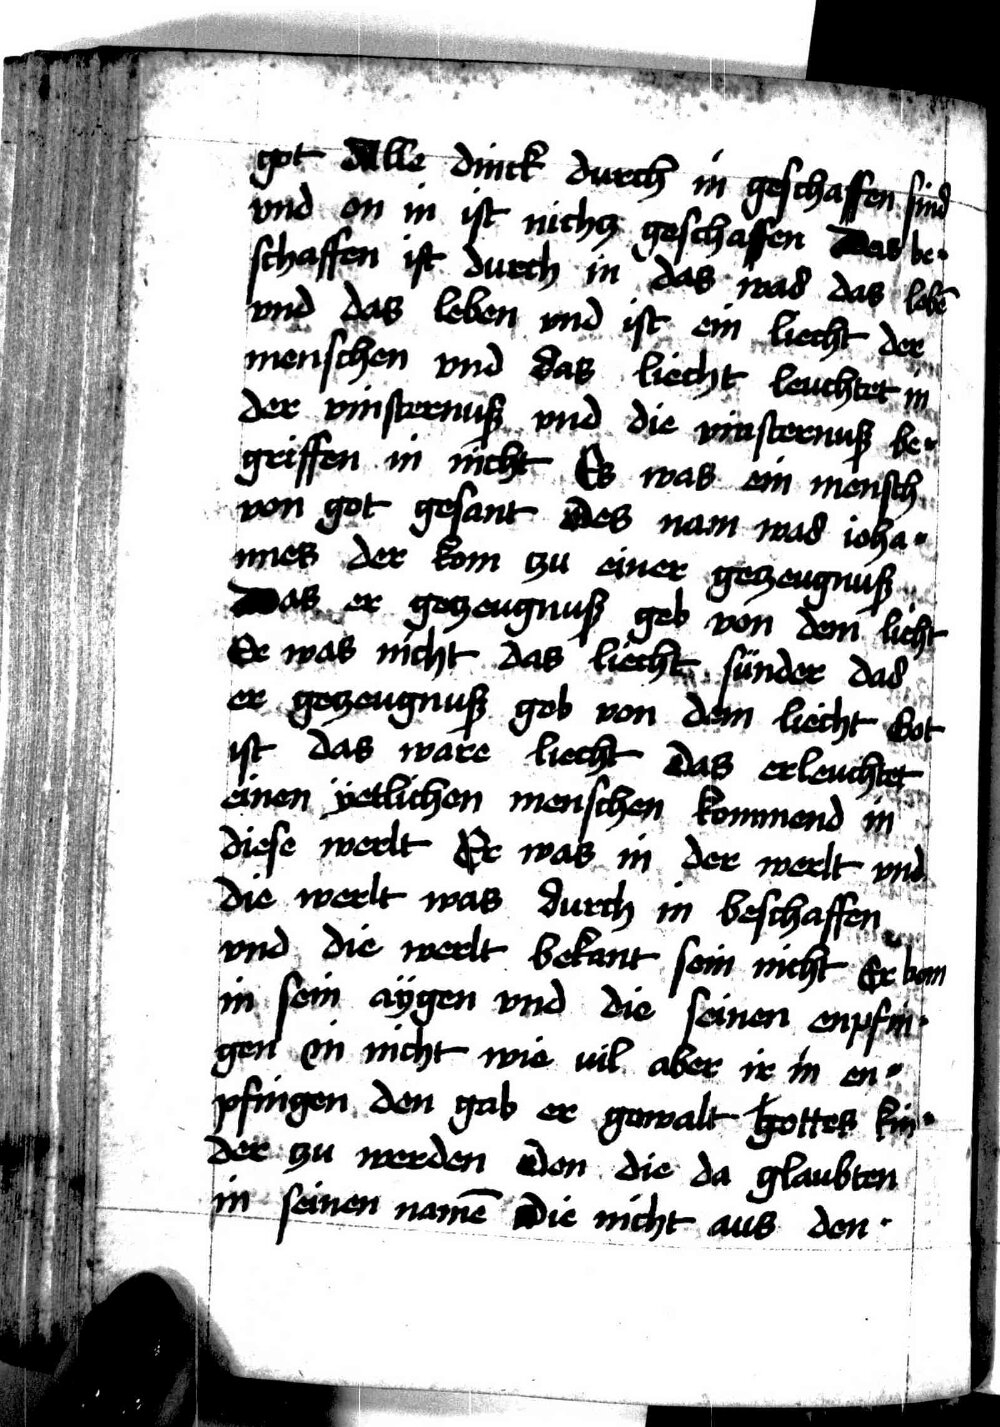 got Alle dinck durch in geschaffen sind
vnd on in ist nichtz geschaffen Das be-
schaffen ist durch in das was das lebē
vnd das leben vnd ist ein liecht der
menschen vnd das liecht leuchtet in
der vinsternuß vnd die vinsternuß be-
griffen in nicht Es was ein mensch
von got gesant Des nam was joha-
nnes der kom zu einer gezeugnuß
Das er gezeugnuß geb von dem licht
Er was nicht das liecht sünder das
er gezeugnuß geb von dem liecht Got
ist das ware liecht Das erleuchtet
einen yetlichen menschen kommend in
diese werlt Er was in der werlt vnd
die werlt was durch in beschaffen
vnd die werlt bekant sein nicht Er kom
in sein aygen vnd die seinen enpfin-
gen in nicht wie vil aber ir in en-
pfingen den gab er gewalt gottes kin-
der zu werden Den die da glaubten
in seinen namē Die nicht aus den